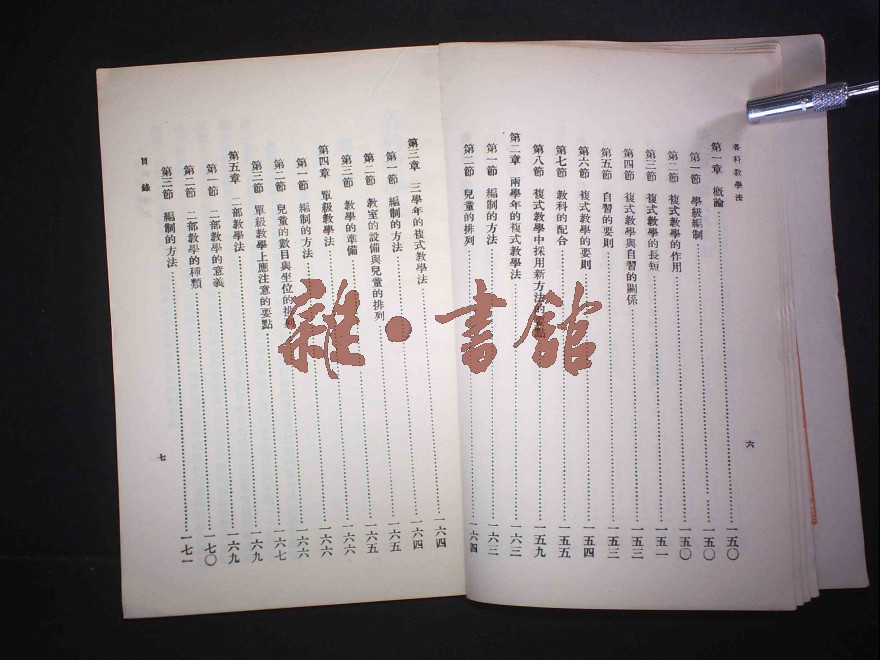 各科教學法
第一章 概論……一五〇
第一節 學級編制……一五〇
第二節 複式教學的作用……一五〇
第三節 複式教學的長短……一五一
第四節 複式教學與自習的關係……一五三
第五節 自習的要則……一五三
第六節 複式教學的要則……一五四
第七節 教科的配合……一五五
第八節 複式教學中採用新方法的要點……一五九
第二章 兩學年的複式教學法……一六三
第一節 編制的方法……一六三
第二節 兒童的排列……一六四
六
第三章 三學年的複式教學法……一六四
第一節 編制的方法……一六四
第二節 教室的設備與兒童的排列……一六五
第三節 教學的準備……一六五
第四章 單級教學法……一六六
第一節 編制的方法……一六六
第二節 兒童的數目與坐位的排列……一六六
第三節 單級教學上應注意的要點……一六七
第五章 二部教學法……一六九
第一節 二部教學的意義……一六九
第二節 二部教學的種類……一七〇
第三節 編制的方法……一七一
目錄
七
雜·書館